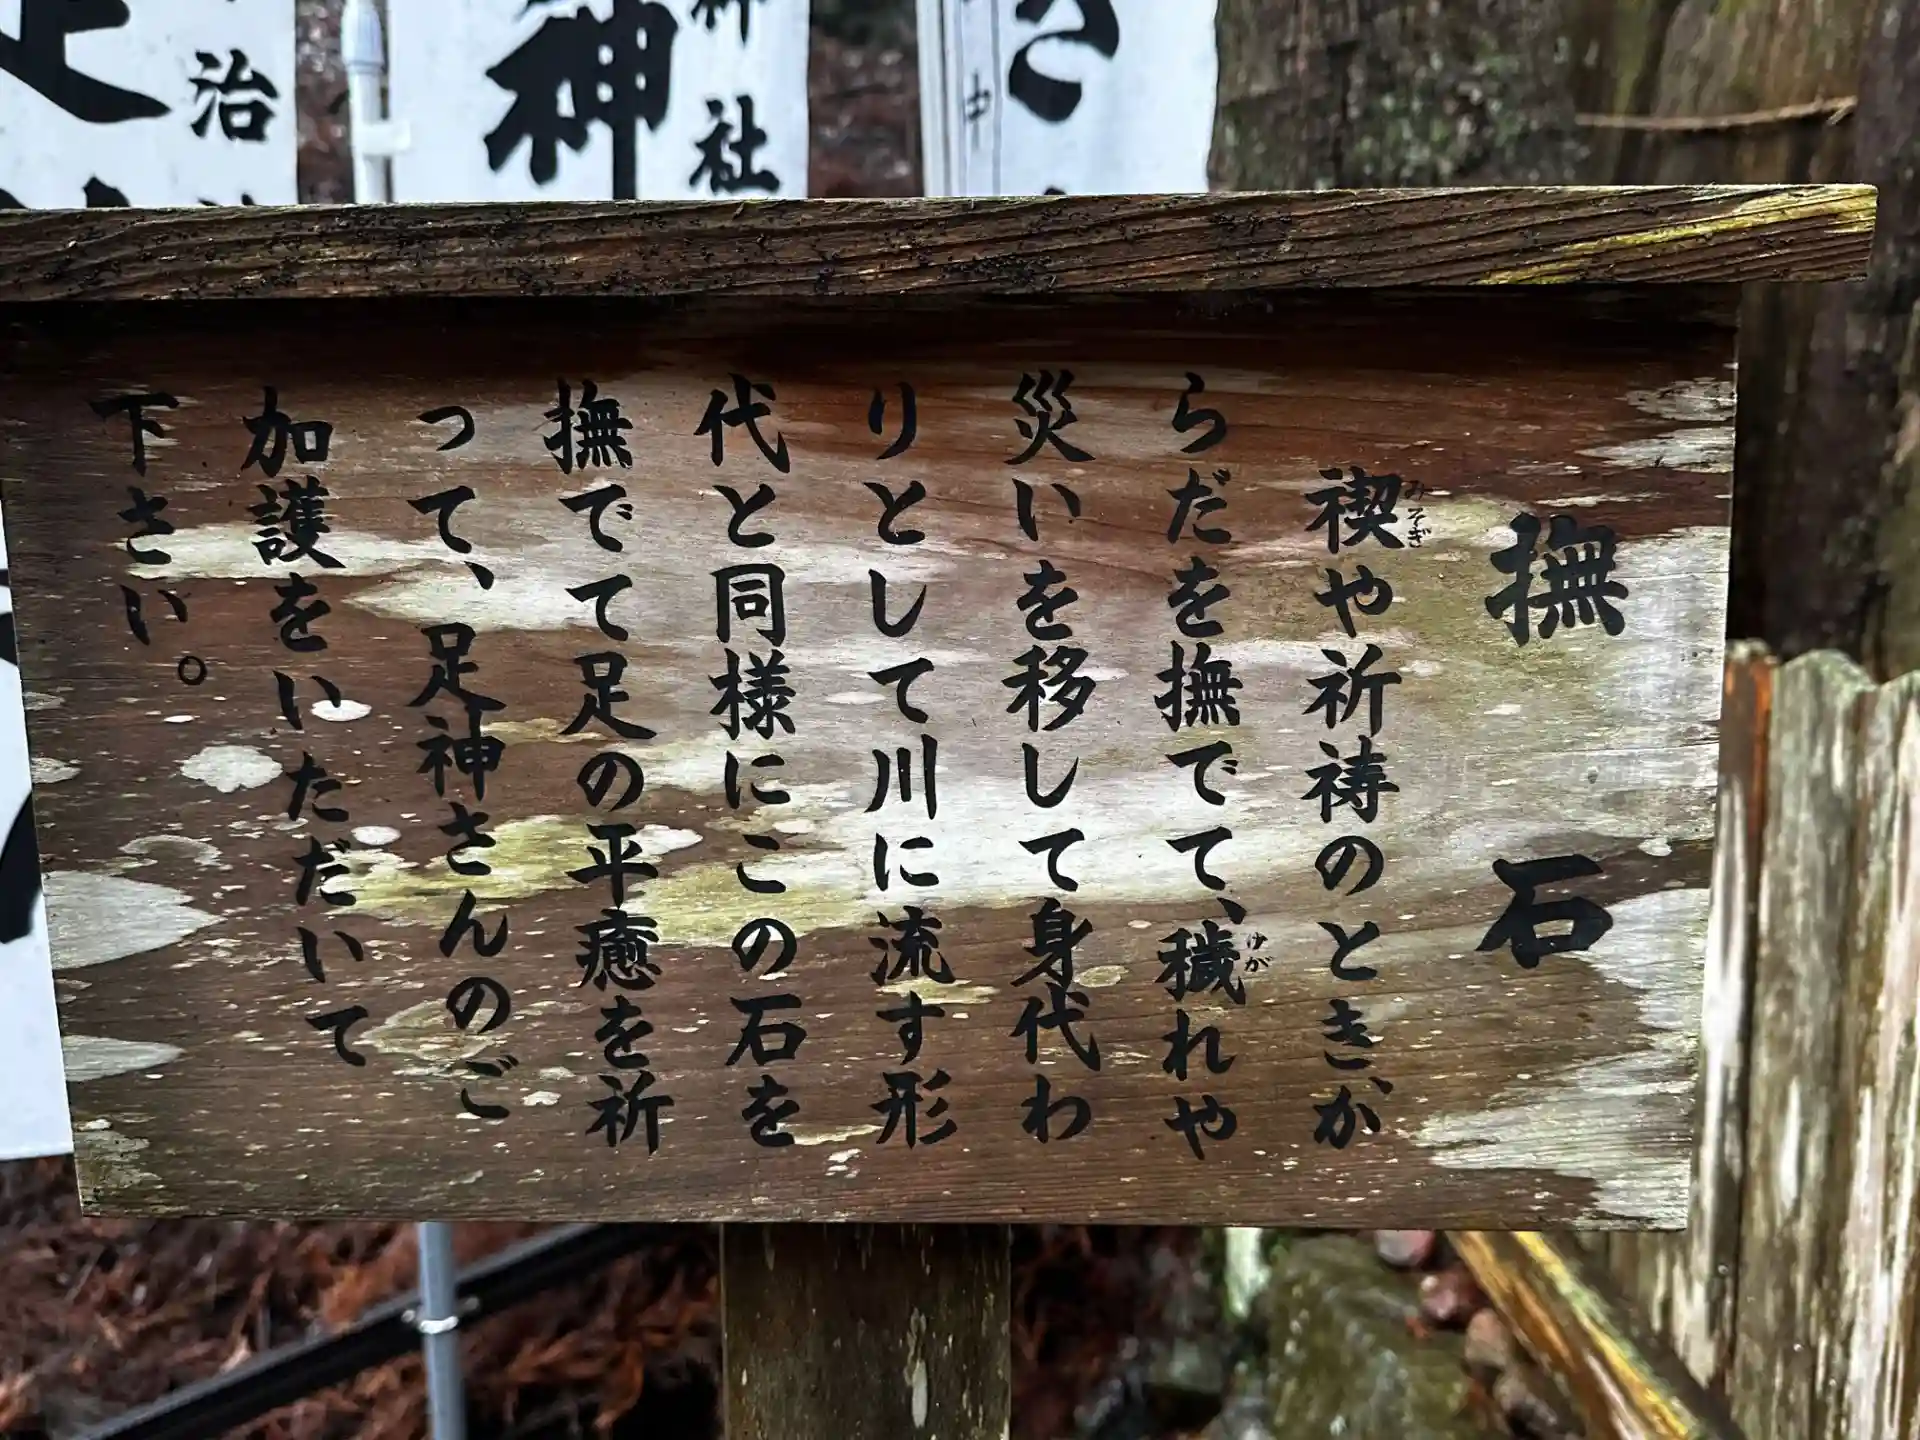 治
神
神社
さ
撫石
禊や祈祷のときか
らだを撫でて、穢れや
災いを移して身代わ
りとして川に流す形
代と同様にこの石を
撫でて足の平癒を祈
って、足神さんのご
加護をいただいて
下さい。
みそぎ
けが